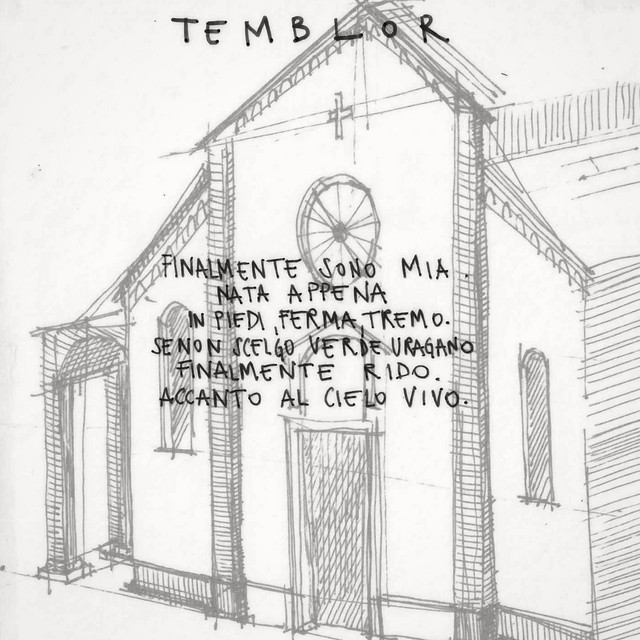 TEMBLOR
FINALMENTE SONO MIA.
NATA APPENA
IN PIEDI, FERMA TREMO.
SE NON SCELGO VERDE URAGANO
FINALMENTE RIDO.
ACCANTO AL CIELO VIVO.